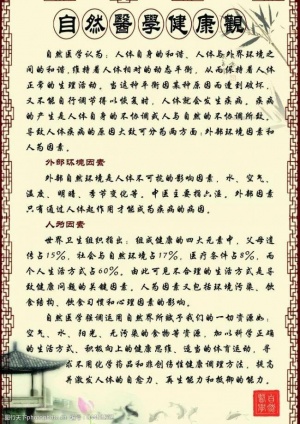 自然醫學健康觀
自然医学认为：人体自身的和谐，人体与外界环境之
间的和谐，维持着人体相对的动态平衡，从而保持着人体
正常的生理活动。当这种平衡因某种原因而遭到破坏，
又不能自行调节得以恢复时，人体就会发生疾病。疾病
的产生是人体自身的不协调或人与自然的不协调所致。
导致人体疾病的原因大致可分为两方面：外部环境因素和
人为因素。
外部环境因素
外部自然环境是人体不可抗的影响因素，水、空气、
温度、明晴、季节变化等。中医主要指六淫。外部因素
只有通过人体起作用才能成为疾病的病因。
人为因素
世界卫生组织指出：组成健康的四大元素中，父母遗
传占15%，社会与自然环境占17%，医疗条件占8%，而
个人生活方式占60%。由此可见不合理的生活方式是导
致健康问题的关键因素。人为因素又包括环境污染、饮
食结构、饮食习惯和心理因素的影响。
自然医学强调运用自然界所赋予我们的一切资源如：
空气、水、阳光、无污染的食物等资源，加以科学正确
的生活方式、积极向上的健康思维、适当的体育运动，寻
求不用化学药品和非创伤性健康调理方法，提高
并激发人体的自愈力、再生能力和抵御的能力。